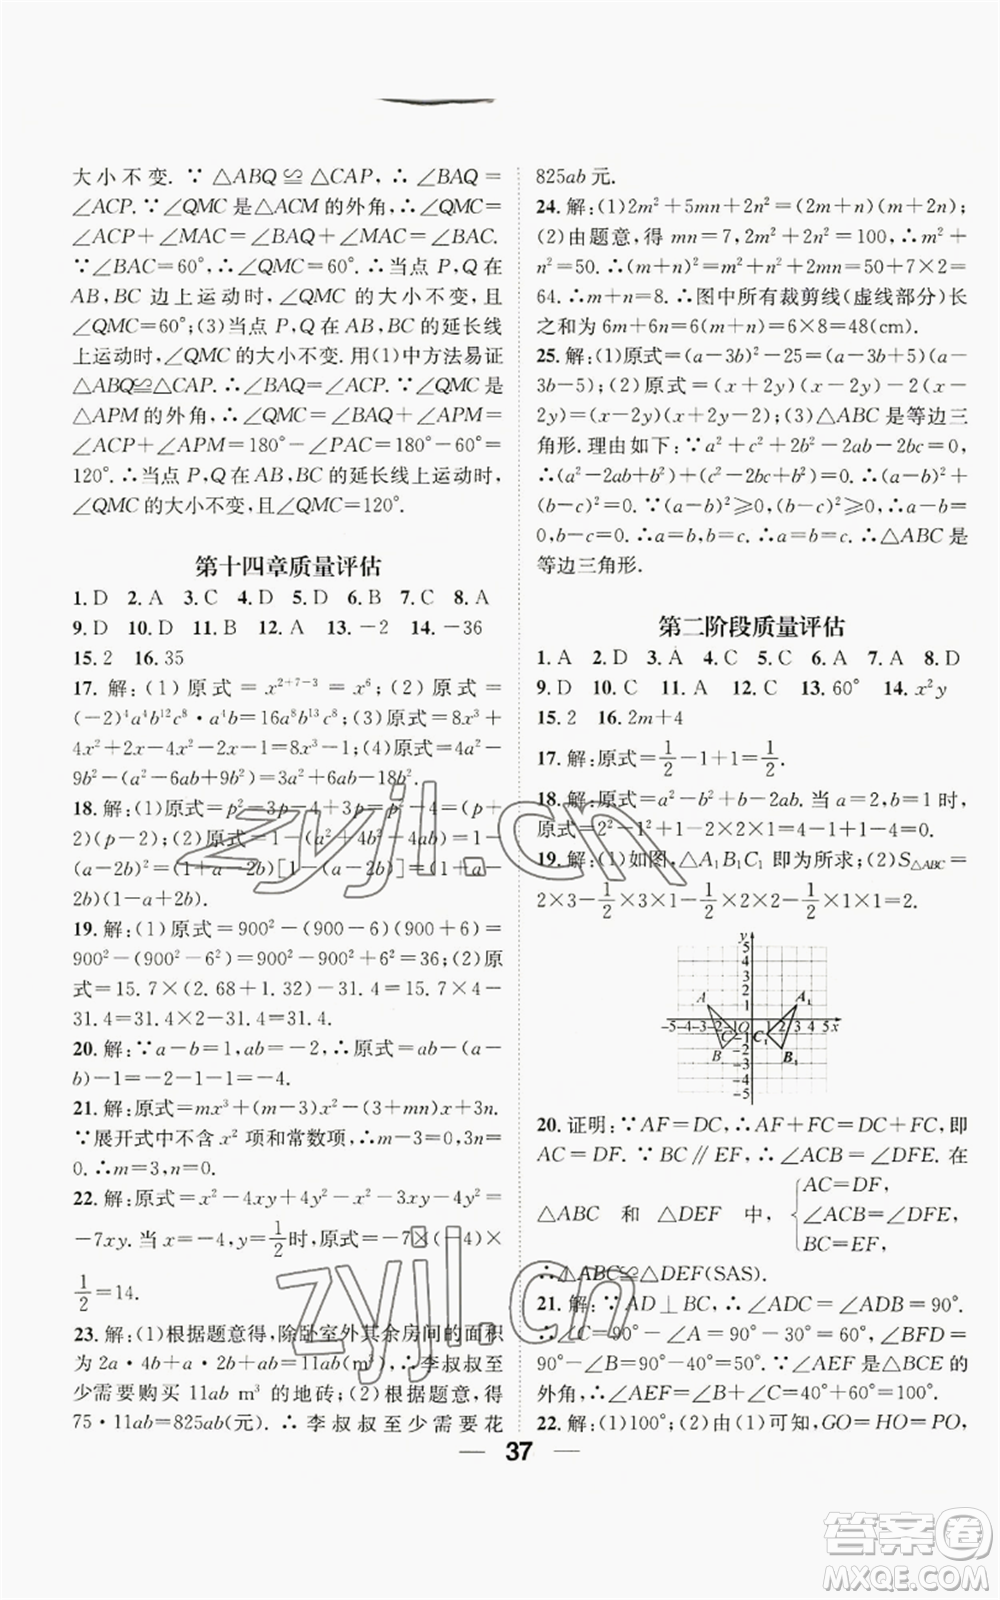 大小不变. ∵ △ABQ ≌ △CAP, ∴ ∠BAQ =
∠ACP. ∵ ∠QMC 是△ACM 的外角, ∴ ∠QMC =
∠ACP＋∠MAC＝∠BAQ＋∠MAC＝∠BAC.
∵∠BAC＝60°, ∴∠QMC＝60°. ∴当点 P, Q 在
AB, BC 边上运动时, ∠QMC 的大小不变, 且
∠QMC＝60°; (3)当点 P, Q 在 AB, BC 的延长线
上运动时, ∠QMC 的大小不变. 用(1)中方法易证
△ABQ≌△CAP, ∴∠BAQ＝∠ACP. ∵∠QMC 是
△APM 的外角, ∴∠QMC＝∠BAQ＋∠APM＝
∠ACP＋∠APM＝180°－∠PAC＝180°－60°＝
120°. ∴当点 P, Q 在 AB, BC 的延长线上运动时,
∠QMC 的大小不变, 且∠QMC＝120°.
第十四章质量评估
1. D 2. A 3. C 4. D 5. D 6. B 7. C 8. A
9. D 10. D 11. B 12. A 13. －2 14. －36
15. 2 16. 35
17. 解: (1) 原式 ＝ x²⁺⁷⁻³ ＝ x⁶; (2) 原式 ＝
(－2)⁴a⁴b¹²c⁸·a⁴b＝16a⁸b¹³c⁸; (3)原式＝8x³＋
4x²－2x²－x＋2x＋1＝8x³＋2x²＋x＋1; (4)原式＝4a²－
9b²－(a²－6ab＋9b²)＝3a²＋6ab－18b².
18. 解: (1)原式＝p²－3p－4＋3p＝p²－4＝(p＋
2)(p－2); (2)原式＝1－(a²＋4b²－4ab)＝1－
(a－2b)²＝[1＋(a－2b)][1－(a－2b)]＝(1＋a－
2b)(1－a＋2b).
19. 解: (1)原式＝900²－(900－6)(900＋6)＝
900²－(900²－6²)＝900²－900²＋6²＝36; (2)原
式＝15.7×(2.68＋1.32)－31.4＝15.7×4－
31.4＝31.4×2－31.4＝31.4.
20. 解: ∵a－b＝1, ab＝－2, ∴原式＝ab－(a－
b)－1＝－2－1－1＝－4.
21. 解: 原式＝mx³＋(m－3)x²－(3＋mn)x＋3n.
∵展开式中不含 x² 项和常数项, ∴m－3＝0, 3n＝
0. ∴m＝3, n＝0.
22. 解: 原式＝x²－4xy＋4y²＋x²－4y²－2x²－3xy＝
－7xy. 当 x＝－4, y＝1/2时, 原式＝－7×(－4)×
1/2＝14.
23. 解: (1)根据题意得, 除卧室外其余房间的面积
为 2a·4b＋a·2b＋a·b＝11ab(m²). ∴李叔叔至
少需要购买 11ab m² 的地砖; (2) 根据题意, 得
75·11ab＝825ab(元). ∴ 李叔叔至少需要花
825ab 元.
24. 解: (1)2m²＋5mn＋2n²＝(2m＋n)(m＋2n);
(2)由题意, 得 mn＝7, 2m²＋2n²＝100, ∴m²＋
n²＝50. ∴(m＋n)²＝m²＋n²＋2mn＝50＋7×2＝
64. ∴m＋n＝8. ∴图中所有裁剪线(虚线部分)长
之和为 6m＋6n＝6(m＋n)＝6×8＝48(cm).
25. 解: (1)原式＝(a－3b)²－25＝(a－3b＋5)(a－
3b－5); (2)原式＝(x＋2y)(x－2y)－2(x－
2y)＝(x－2y)(x＋2y－2); (3)△ABC 是等边三
角形. 理由如下: ∵a²＋c²＋2b²－2ab－2bc＝0,
∴(a²－2ab＋b²)＋(b²－2bc＋c²)＝0. ∴(a－b)²＋
(b－c)²＝0. ∵(a－b)²≥0, (b－c)²≥0, ∴a－b＝
0, b－c＝0. ∴a＝b, b＝c. ∴a＝b＝c. ∴△ABC 是
等边三角形.
第二阶段质量评估
1. A 2. D 3. A 4. C 5. C 6. A 7. A 8. D
9. D 10. C 11. A 12. C 13. 60° 14. x²y
15. 2 16. 2m＋4
17. 解: 原式＝1/2－1＋1＝1/2.
18. 解: 原式＝a²－b²＋b－2ab. 当 a＝2, b＝1时,
原式＝2²－1²＋1－2×2×1＝4－1＋1－4＝0.
19. 解: (1)如图, △A₁B₁C₁ 即为所求; (2)S△ABC＝
2×3－1/2×3×1－1/2×2×2－1/2×1×1＝2.
y
5
4
3
2
1
A A₁
－5－4－3－2－1 O 1 2 3 4 5 x
C C₁
B B₁
－1
－2
－3
－4
－5
20. 证明: ∵AF＝DC, ∴AF＋FC＝DC＋FC, 即
AC＝DF. ∵BC∥EF, ∴∠ACB＝∠DFE. 在
△ABC 和 △DEF 中, { AC＝DF,
∠ACB＝∠DFE,
BC＝EF,
∴△ABC≌△DEF(SAS).
21. 解: ∵AD⊥BC, ∴∠ADC＝∠ADB＝90°.
∵∠C＝60°, ∴∠A＝90°－60°＝30°, ∠BFD＝
90°－∠B＝90°－30°＝60°. ∵∠AEF 是△BCE 的
外角, ∴∠AEF＝∠B＋∠C＝30°＋60°＝90°.
22. 解: (1)100°; (2)由(1)可知, GO＝HO＝PO,
37
zyjl.cn
zyjl.cn
答案卷
MXQE.COM